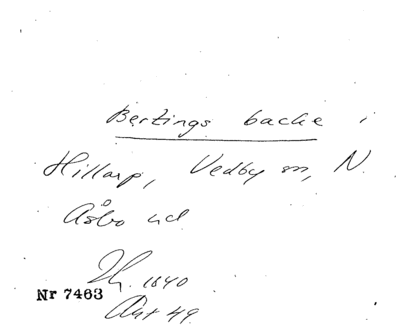 Bertings backe i
Hillarp, Vedby sn, N.
Åsbo hd
Th. 1840
Nr 7463
Akt 49.